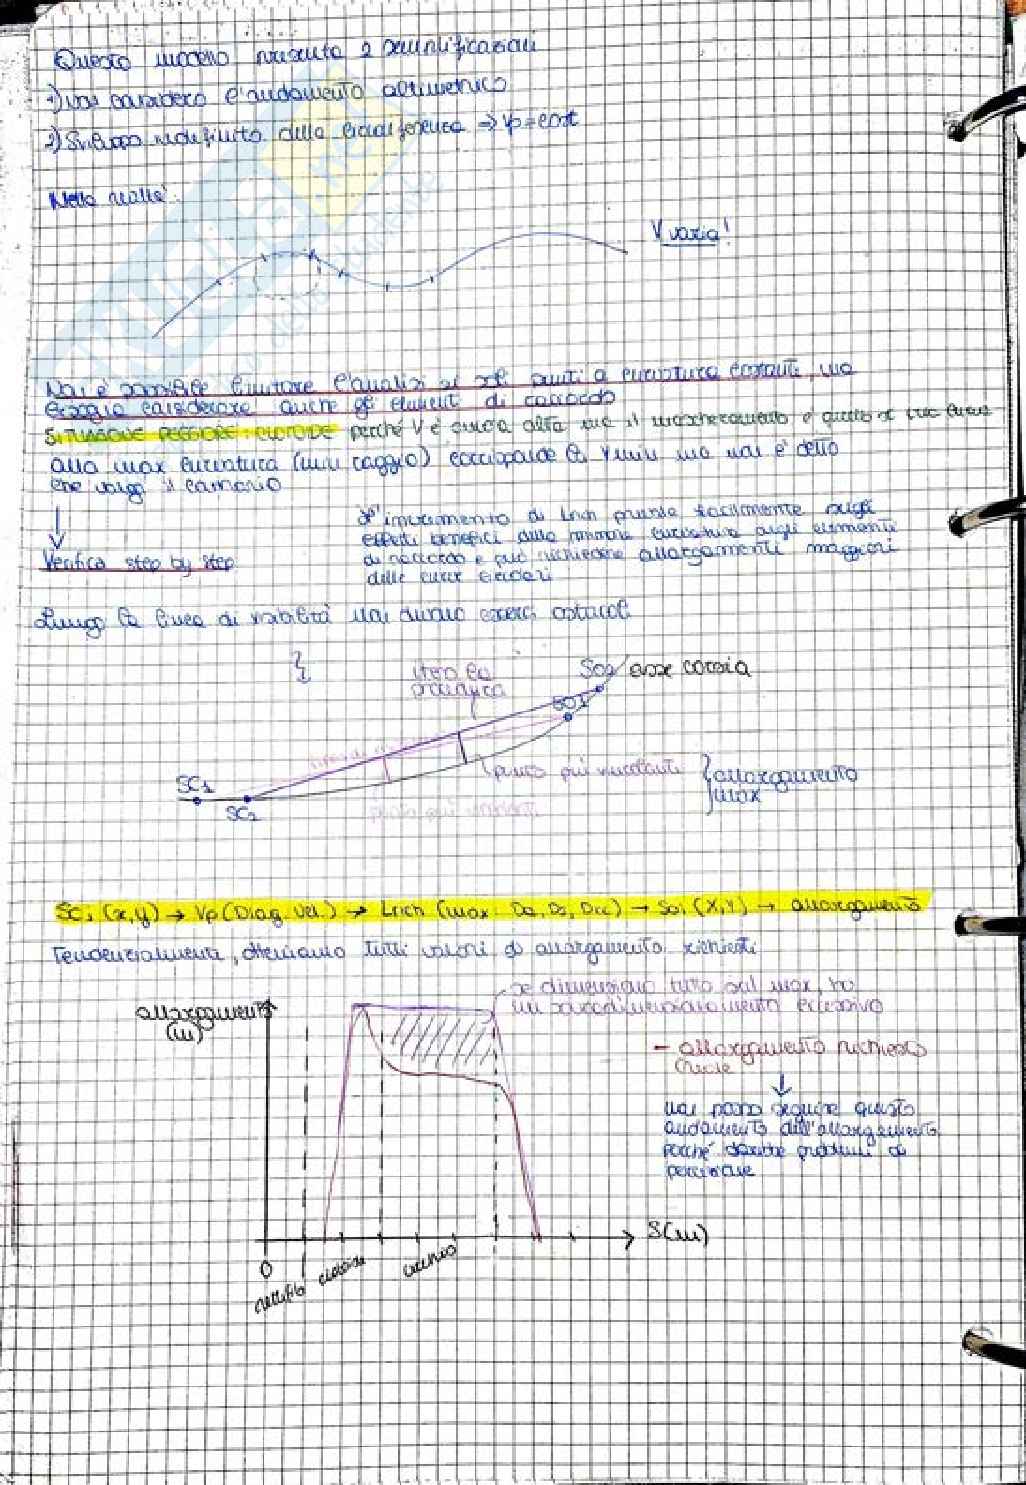 Questo modello presenta 2 semplificazioni
1) Non considero l'andamento altimetrico
2) Sviluppo indefinito della circonferenza ⇒ Vp = cost
Nella realtà:
V varia!
Non è possibile limitare l'analisi ai soli punti a curvatura costante, ma
bisogna considerare anche gli elementi di raccordo
SITUAZIONE PEGGIORE: CLOTOIDE perché V è ancora alta ma il mascheramento è quello di una curva
alla max curvatura (min raggio) corrisponde la Vmin ma non è detto
che valga il contrario
L'incremento di Lrich prevale facilmente sugli
effetti benefici della minore curvatura degli elementi
di raccordo e può richiedere allargamenti maggiori
delle curve circolari
Verifica step by step
Lungo la linea di visibilità non devono esserci ostacoli
SO2 asse corsia
SO1
SC1
SC2
punto più vincolante
allargamento
max
SCi (x,y) → Vp (Diag. Vel.) → Lrich (max Da, Ds, Dcc) → SOi (X,Y) → allargamento
Tendenzialmente, otteniamo tutti valori di allargamento richiesti
se dimensiono tutto sul max, ho
un sovradimensionamento eccessivo
allargamento
(m)
- allargamento richiesto
non posso seguire questo
andamento dell'allargamento
perché darebbe problemi di
percezione
S(m)
0
rettifilo
clotoide
cerchio